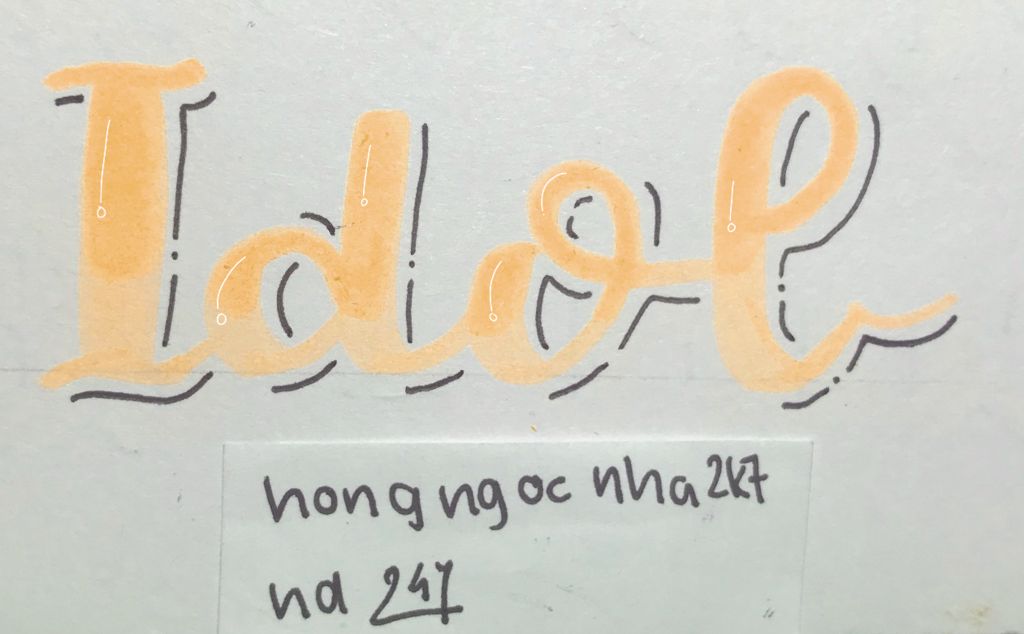 Idol
hongngoc nha2k7
nd 247